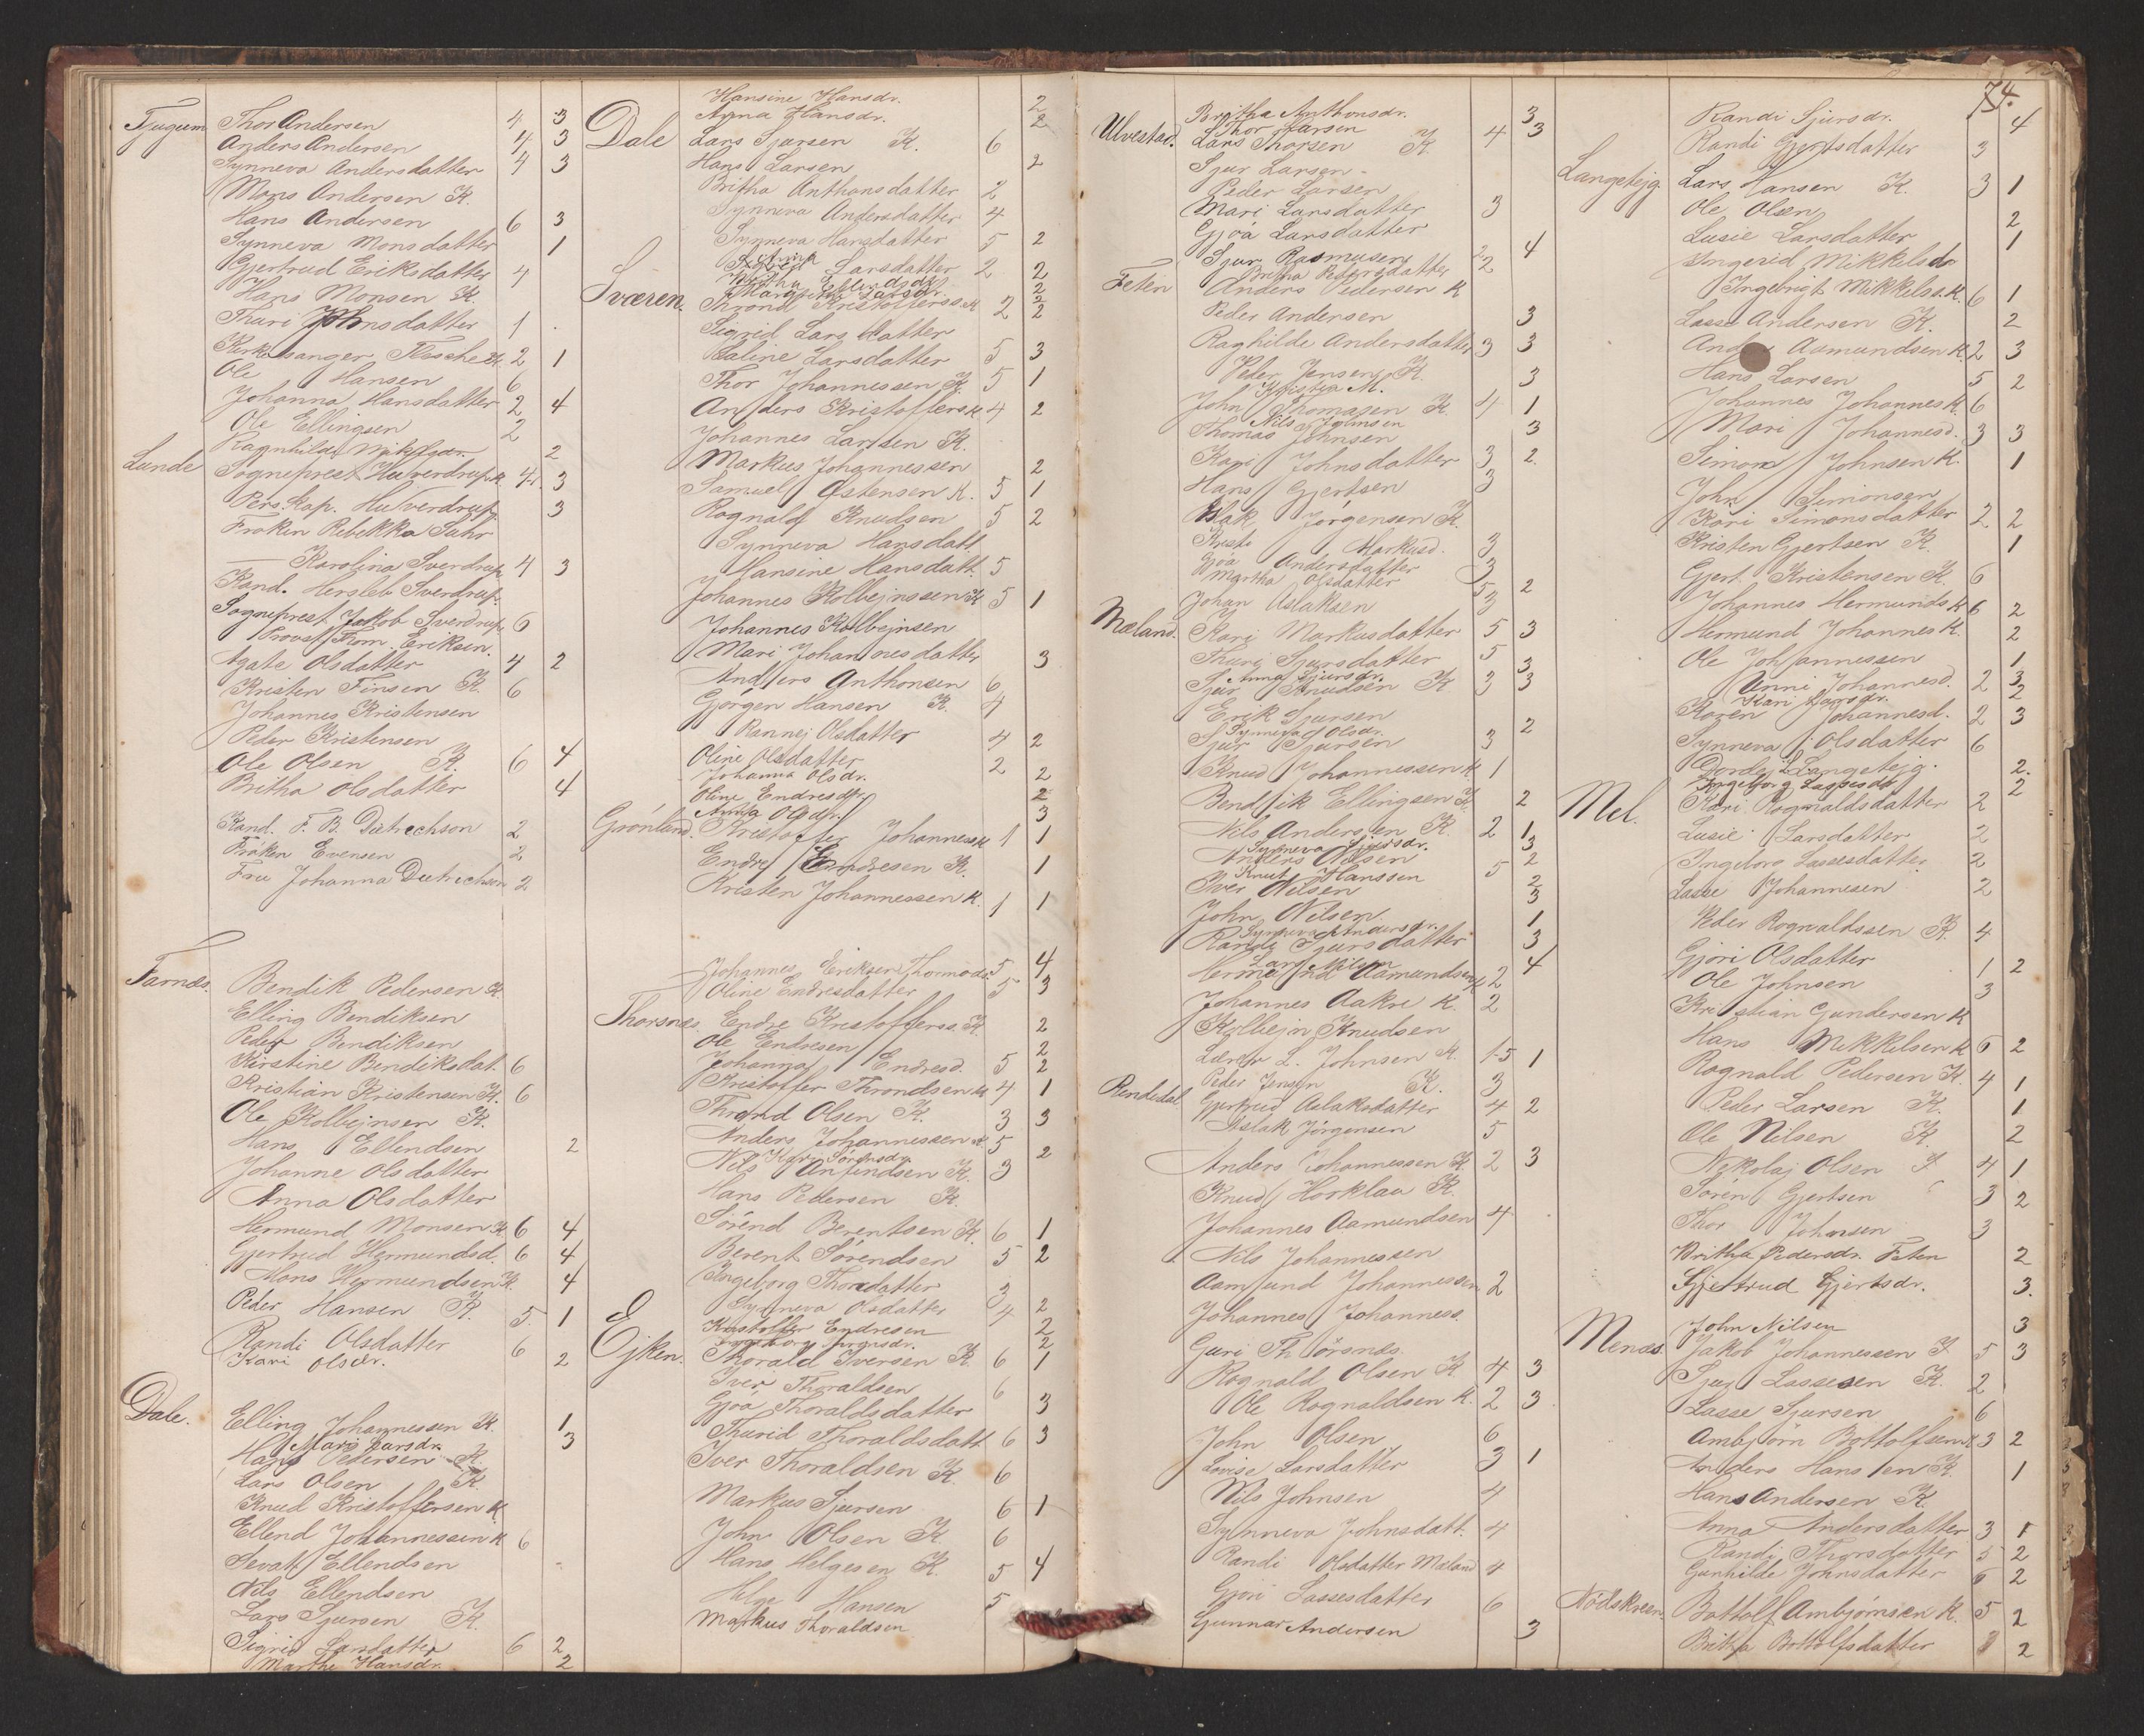 Tjugum Thor Andersen 4 3
Anders Andersen 4 3
Synneva Andersdatter 4 3
Mons Andersen K.
Hans Andersen 6 3
Synneva Monsdatter 1
Gjertrud Eriksdatter 4
Hans Monsen K.
Thuri Johnsdatter 1
Kirkesanger 2 1
Ole Hansen 6
Johanna Hansdatter 2 4
Ole Ellingsen 2
Ragnhilde 2
Lunde Sogneprest K. 4 3
Pers. Kap. 3
Frøken Rebekka
— Karolina Sverdrup 4 3
Kand. Hersleb Sverdrup.
Sogneprest Jakob Sverdrup 6
Provst Thom. Eriksen.
Agate Olsdatter 4 2
Kristen Finsen K. 6
Johannes Kristensen
Peder Kristensen
Ole Olsen K. 6 4
Britha Olsdatter 4
Kand. F. B. 2
Frøken Evensen 2
Fru Johanna 2
Farnæs. Bendik Pedersen K.
Elling Bendiksen
Peder Bendiksen
Kirstine Bendiksdat. 6
Kristian Kristensen K. 6
Ole Kolbejnsen K.
Hans Ellendsen 2
Johanne Olsdatter
Anna Olsdatter
Hermund Monsen K 6 4
Gjertrud Hermundsd. 6 4
Mons Hermundsen K. 4
Peder Hansen K. 5 1
Randi Olsdatter 6
Kari Olsdr. 2
Dale. Elling Johannessen K. 1
Mari Larsdr. 3
Hans Pedersen K.
Lars Olsen K.
Knud Kristoffersen K
Ellend Johannessen K 6
Sevat Ellendsen
Nils Ellendsen
Lars Sjursen K.
Sigrid Larsdatter 6 2
Marthe Hansdr. 2
Hansine Hansdr. 2
Anna Hansdr. 2
Dale Lars Sjursen K. 6
Hans Larsen 2
Britha Anthonsdatter 2
Synneva Andersdatter 4
Synneva Hansdatter 5 2
Larsdatter 2 2
Britha Ellendsdtr. 2
Margrethe Larsdr. 2
Sværen. Thrond Kristoffers. K 2 2
Sigrid Larsdatter
Valine Larsdatter 5 3
Thor Johannessen K 5 1
Anders Kristoffers. K 4 2
Johannes Larsen K.
Markus Johannessen 2
Samuel Østensen K. 5 1
Rognald Knudsen 5 2
Synneva Hansdatt.
Hansine Hansdatt. 5
Johannes Kolbejnssen K 5 1
Johannes Kolbejnsen
Mari Johannesdatter 3
Anders Anthonsen 6
Gjørgen Hansen K. 4
Rannej Olsdatter 4 2
Oline Olsdatter 2
Johanna Olsdr. 2
Oline Endresdtr. 2
Anna Olsdtr. 3
Grønland. Kristoffer Johanness K 1 1
Endre Endresen K. 1
Kristen Johannessen K. 1 1
Johannes Eriksen Thormods. 5 4
Oline Endresdatter 5 3
Thorsnæs. Endre Kristofferss. K 2
Ole Endresen 2
Johanna Endresd. 5 2
Kristoffer Throndsen K 4 1
Thrond Olsen K. 3 3
Anders Johannessen K. 5
Kari Sørensdr. 2
Nils Anfindsen K. 3
Hans Pedersen K.
Sørend Berentsen K. 6 1
Berent Sørendsen 5 2
Ingeborg Thorsdatter 3
Synneva Olsdatter 4 2
Kristoffer Endresen 2
Ingeborg 2
Ejken. Thorald Iversen K. 6 1
Iver Thoraldsen 6
Gjøa Thoraldsdatter 3
Thurid Thoraldsdatt. 6 3
Iver Thoraldsen K 6
Markus Sjursen 6 1
John Olsen K 6
Hans Helgesen K. 5 4
Helge Hansen 5
Markus Thoraldsen
74.
Britha Anthonsdr. 3
Thor Larsen 3
Ulvestad. Lars Thorsen K 4
Sjur Larsen
Peder Larsen
Mari Larsdatter 3
Gjøa Larsdatter
Sjur Rasmusen 2 4
Britha Pedersdatter 2
Feten Anders Pedersen K
Peder Andersen 3
Raghilde Andersdatter 3 3
Peder Jensen K. 3
Kristen M.
John Thomasen K. 4 1
Nils Johnsen 3
Thomas Johnsen
Kari Johnsdatter 3 2
Hans Gjertsen 3
Islak Jørgensen K.
Markusd. 3
Gjøa Andersdatter 3
Martha Olsdatter 5 2
Johan Aslaksen 3
Mæland. Kari Markusdatter 5 3
Thuri Sjursdatter 5
Anna Sjursdr. 3
Sjur Knudsen K 3 3
Erik Sjursen
Synneva Olsdr. 2
Sjur Sjursen 3
Knud Johannessen K. 1
Bendik Ellingsen K 2
Nils Andersen K. 2 1
Synneva Sjursdr. 3
Anders Nilsen 5 2
Knut Hanssen 2
Iver Nilsen 3
John Nilsen 1
Synneva Andersdr. 3
Randi Sjursdatter
Lars Nilsen 4
Hermund Aamundsen K 2
Johannes Aakre K. 2
Kolbejn Knudsen
Lærer L. Johnsen K. 1-5 1
Rendedal Peder Jensen K. 3
Gjertrud Aslaksdatter 4 2
Aslak Jørgensen 5
Anders Johannessen K. 2 3
Knud Horklau K.
Johannes Aamundsen 4
Nils Johannessen
Aamund Johannessen 2
Johannes Johanness.
Guri Thorsnæs.
Rognald Olsen K 4 3
Ole Rognaldsen K. 2 3
John Olsen 6
Lovise Larsdatter 3 1
Nils Johnsen 4
Synneva Johnsdatt. 4
Randi Olsdatter Mæland 4
Gjøri Lassesdatter 6
Gunnar Andersen 3
Randi Sjursdr. 4
Randi Gjertsdatter 3
Langetejg. Lars Hansen K. 3 1
Ole Olsen 2
Lusie Larsdatter 1
Ingerid Mikkelsdr
Ingebrigt Mikkelss. K. 6 1
Lasse Andersen K. 2
Aamundsen K 2 3
Hans Larsen 5 2
Johannes Johannes K. 6
Mari Johannesd. 3 3
Simon Johnsen K. 1
John Simonsen
Kari Simonsdatter 2 2
Kristen Gjertsen K. 1
Gjert Kristensen K. 6
Johannes Hermunds K 6 2
Hermund Johannes K. 2
Ole Johannessen 1
Unni Johannesd. 2 3
Kari Larsdr. 2
Karen Johannesd. 2 3
Synneva Olsdatter 6
Dordej L. Langetejg. 2.
Ingeborg Lassesdr 2
Mel. Kari Rognaldsdatter 2
Lusie Larsdatter 2
Ingeborg Lassesdatter 2
Lasse Johannesen 2
Peder Rognaldssen K. 4
Gjøri Olsdatter 1 2
Ole Johnsen 3
Kristian Gundersen K
Hans Mikkelsen K 6 2
Rognald Pedersen K. 4 1
Peder Larsen K. 1
Ole Nilsen K. 2
Nikolaj Olsen 4 1
Søren Gjertsen 3 2
Thor Johnsen 3
Britha Pedersdr. Feten 2
Gjertrud Gjertsdr. 3.
John Nilsen 3
Menæs. Jakob Johannessen 5 3
Sjur Lassesen K. 2
Lasse Sjursen 6
Ambjørn Bottolfsen K 3 2
Anders Hanssen K. 1
Hans Andersen K.
Anna Andersdatter 3 1
Randi Thorsdatter 5 2
Gunhilde Johnsdatter 6 2
Nødskreen Bottolf Ambjørnsen K. 5 2
Britha Bottolfsdatter 3 2